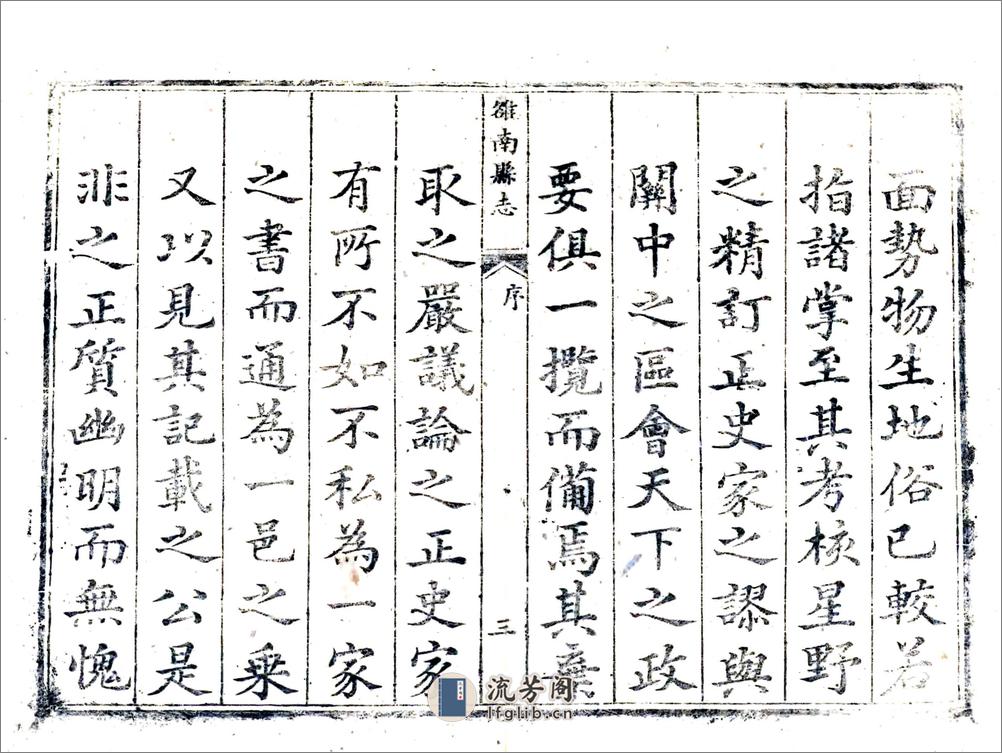 面勢物生地俗已較若
指諸掌至其考核星野
之精訂正史家之謬與
關中之區會天下之政
要俱一攬而備焉其棄
雒南縣志 序 三
取之嚴議論之正史家
有所不如不私為一家
之書而通為一邑之乘
又以見其記載之公是
非之正質幽明而無愧
流芳阁
lfglib.cn